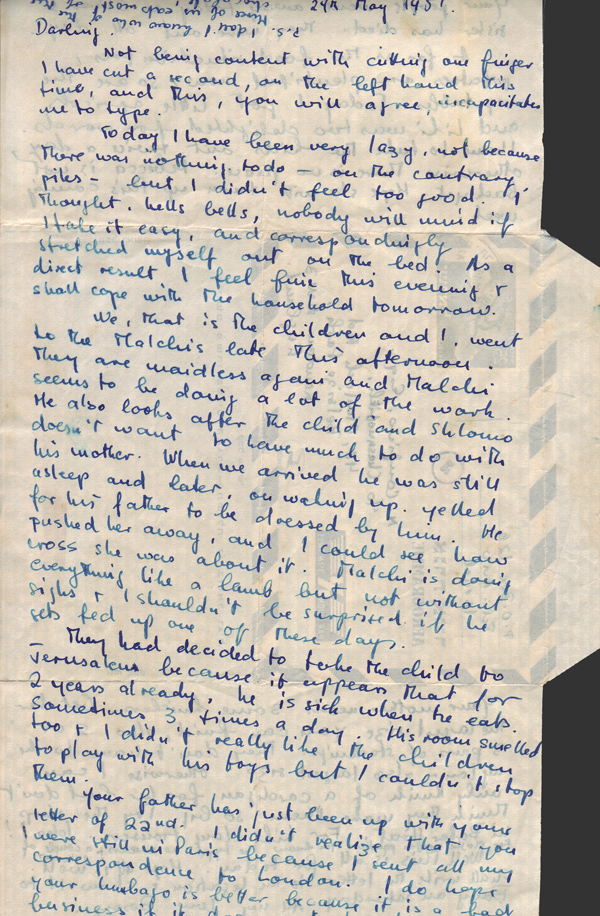 24th May 1951.
P.S. I don't know who of the
three of us is most
Darling.
Not being content with cutting one finger
I have cut a second, on the left hand this
time, and this, you will agree, incapacitates
me to type.
Today I have been very lazy, not because
there was nothing to do – on the contrary,
piles – but I didn't feel too good. I
thought, hells bells, nobody will mind if
I take it easy, and correspondingly
stretched myself out on the bed. As a
direct result I feel fine this evening &
shall cope with the household tomorrow.
We, that is the children and I, went
to the Malchis late this afternoon.
They are maidless again and Malchi
seems to be doing a lot of the work.
He also looks after the child and Shlomo
doesn't want to have much to do with
his mother. When we arrived he was still
asleep and later, on waking up, yelled
for his father to be dressed by him. He
pushed her away, and I could see how
cross she was about it. Malchi is doing
everything like a lamb but not without
sighs & I shouldn't be surprised if he
gets fed up one of these days.
They had decided to take the child to
Jerusalem because it appears that for
2 years already, he is sick when he eats.
Sometimes 3 times a day. His room smelled
too & I didn't really like the children
to play with his toys but I couldn't stop
them.
Your father has just been up with your
letter of 22nd. I didn't realize that you
were still in Paris because I sent all my
correspondence to London. I do hope
your lumbago is better because it is a bad
business if it